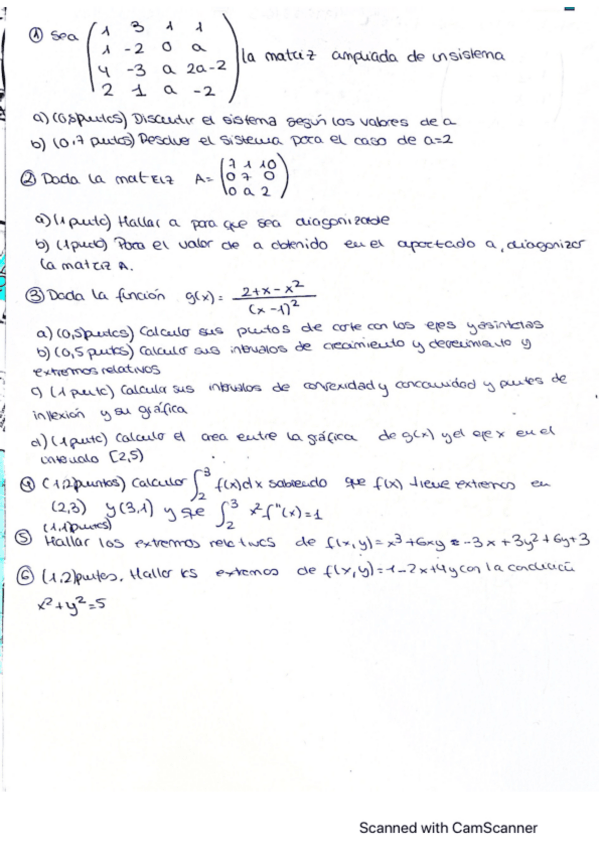 ① Sea ( 1 3 1 1
1 -2 0 a
4 -3 a 2a-2
2 1 a -2 ) la matriz ampliada de un sistema
a) (0,8 puntos) Discutir el sistema según los valores de a
b) (0,7 puntos) Resolver el sistema para el caso de a=2
② Dada la matriz A= ( 7 1 10
0 7 0
0 a 2 )
a) (1 punto) Hallar a para que sea diagonizable
b) (1 punto) Para el valor de a obtenido en el apartado a, diagonizar
la matriz A.
③ Dada la función g(x) = 2+x-x² / (x-1)²
a) (0,5 puntos) Calcula sus puntos de corte con los ejes y asíntotas
b) (0,5 puntos) Calcula sus intervalos de crecimiento y decrecimiento y
extremos relativos
c) (1 punto) Calcula sus intervalos de convexidad y concavidad y puntos de
inflexión y su gráfica
d) (1 punto) Calcula el area entre la gráfica de g(x) y el eje x en el
intervalo [2,5)
④ (1,2 puntos) Calcular ∫₂³ f(x)dx sabiendo que f(x) tiene extremos en
(2,3) y (3,1) y que ∫₂³ x²f''(x)=1
(1,1 puntos)
⑤ Hallar los extremos relativos de f(x,y)=x³+6xy -3x+3y²+6y+3
⑥ (1,2) puntos. Hallar los extremos de f(x,y)=1-2x+4y con la condición
x²+y²=5
Scanned with CamScanner